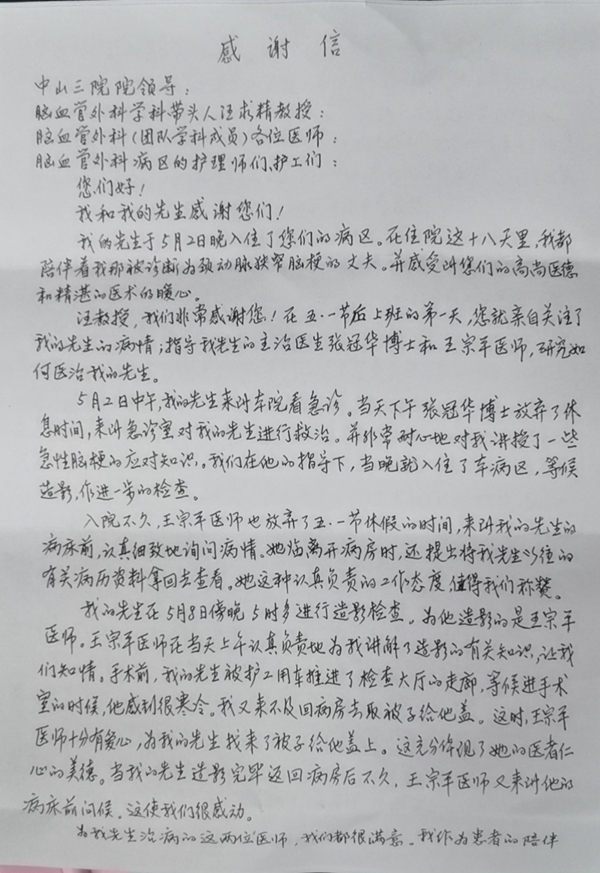 感谢信
中山三院院领导：
脑血管外科学科带头人汪求精教授：
脑血管外科（团队学科成员）各位医师：
脑血管外科病区的护理师们、护工们：
您们好！
我和我的先生感谢您们！
我的先生于5月2日晚入住了您们的病区。在住院这十八天里，我都
陪伴着我那被诊断为颈动脉狭窄脑梗的丈夫。并感受到您们的高尚医德
和精湛的医术的暖心。
汪教授，我们非常感谢您！在五·一节后上班的第一天，您就亲自关注了
我的先生的病情；指导我先生的主治医生张冠华博士和王宗军医师，研究如
何医治我的先生。
5月2日中午，我的先生来到车院看急诊。当天下午张冠华博士放弃了休
息时间，来到急诊室对我的先生进行救治。并非常耐心地对我讲授了一些
急性脑梗的应对知识。我们在他的指导下，当晚就入住了车病区，等候
造影，作进一步的检查。
入院不久，王宗军医师也放弃了五·一节休假的时间，来到我的先生的
病床前，认真细致地询问病情。她临离开病房时，还提出将我先生以往的
有关病历资料拿回去查看。她这种认真负责的工作态度值得我们称赞。
我的先生在5月8日傍晚5时多进行造影检查。为他造影的是王宗军
医师。王宗军医师在当天上午认真负责地为我讲解了造影的有关知识，让我
们知情。手术前，我的先生被护工用车推进了检查大厅的走廊，等候进手术
室的时候，他感到很寒冷。我又来不及回病房去取被子给他盖。这时，王宗军
医师十分有爱心，为我的先生找来了被子给他盖上。这充分体现了她的医者仁
心的美德。当我的先生造影完毕返回病房后不久，王宗军医师又来到他的
病床前问候。这使我们很感动。
为我先生治病的这两位医师，我们都很满意。我作为患者的陪伴